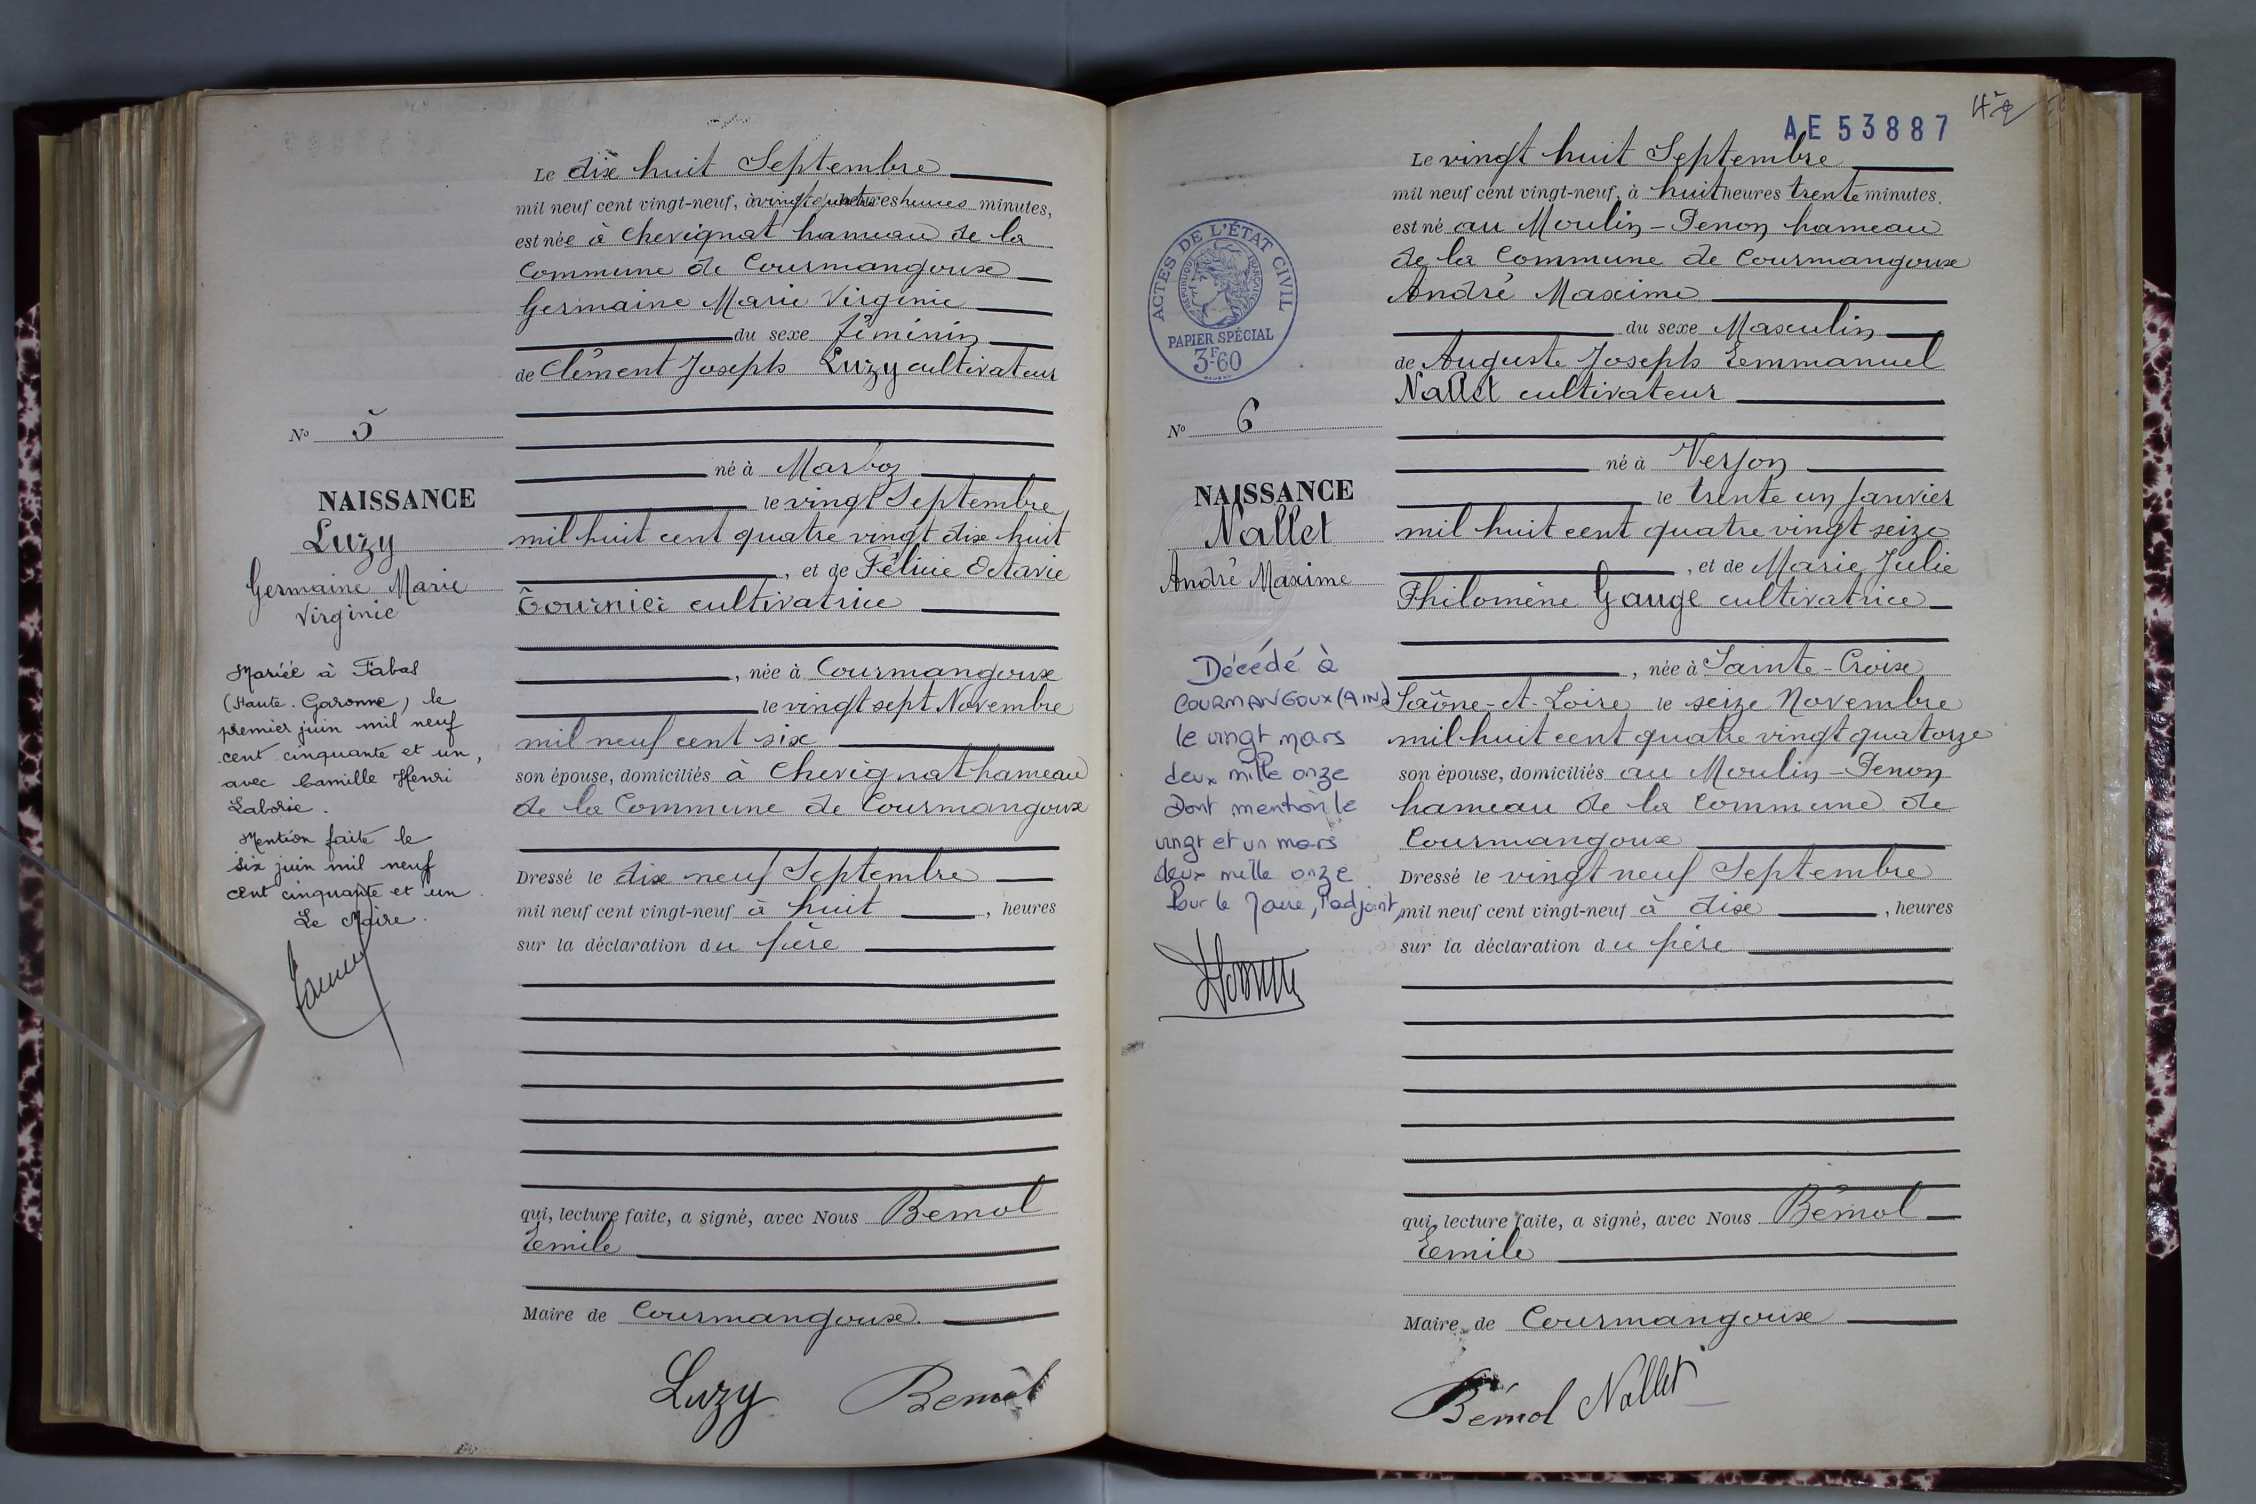 Le dix huit Septembre
mil neuf cent vingt-neuf, à vingt heures minutes,
est née à Chevignat hameau de la
Commune de Courmangoux
Germaine Marie Virginie
du sexe féminin
de Clément Joseph Luzy cultivateur
né à Marboz
le vingt Septembre
mil huit cent quatre vingt dix huit
, et de Félicie Octavie
Tournier cultivatrice
, née à Courmangoux
le vingt sept Novembre
mil neuf cent six
son épouse, domiciliés à Chevignat hameau
de la Commune de Courmangoux
Dressé le dix neuf Septembre
mil neuf cent vingt-neuf à huit , heures
sur la déclaration du père
qui, lecture faite, a signé, avec Nous Bémol
Eemile
Maire de Courmangoux.
Luzy Bémol
No 5
NAISSANCE
Luzy
Germaine Marie
Virginie
Mariée à Fabas
(Haute-Garonne) le
premier juin mil neuf
cent cinquante et un,
avec Camille Henri
Laborie.
Mention faite le
six juin mil neuf
cent cinquante et un.
Le Maire.
AE 53887
Le vingt huit Septembre
mil neuf cent vingt-neuf, à huit heures trente minutes.
est né au Moulin-Fenon hameau
de la Commune de Courmangoux
André Maxime
du sexe Masculin
de Auguste Joseph Eemmanuel
Nallet cultivateur
né à Verjon
le trente un Janvier
mil huit cent quatre vingt seize
, et de Marie Julie
Philomène Gauge cultivatrice
, née à Sainte-Croix
Saône-et-Loire le seize Novembre
mil huit cent quatre vingt quatorze
son épouse, domiciliés au Moulin-Fenon
hameau de la Commune de
Courmangoux
Dressé le vingt neuf Septembre
mil neuf cent vingt-neuf à dix , heures
sur la déclaration du père
qui, lecture faite, a signé, avec Nous Bémol
Eemile
Maire de Courmangoux
Bémol Nallet
ACTES DE L'ÉTAT CIVIL
RÉPUBLIQUE FRANÇAISE
PAPIER SPÉCIAL
3F.60
No 6
NAISSANCE
Nallet
André Maxime
Décédé à
COURMANGOUX (AIN)
le vingt mars
deux mille onze
Dont mention le
vingt et un mars
deux mille onze
Pour le Maire, l'adjoint,